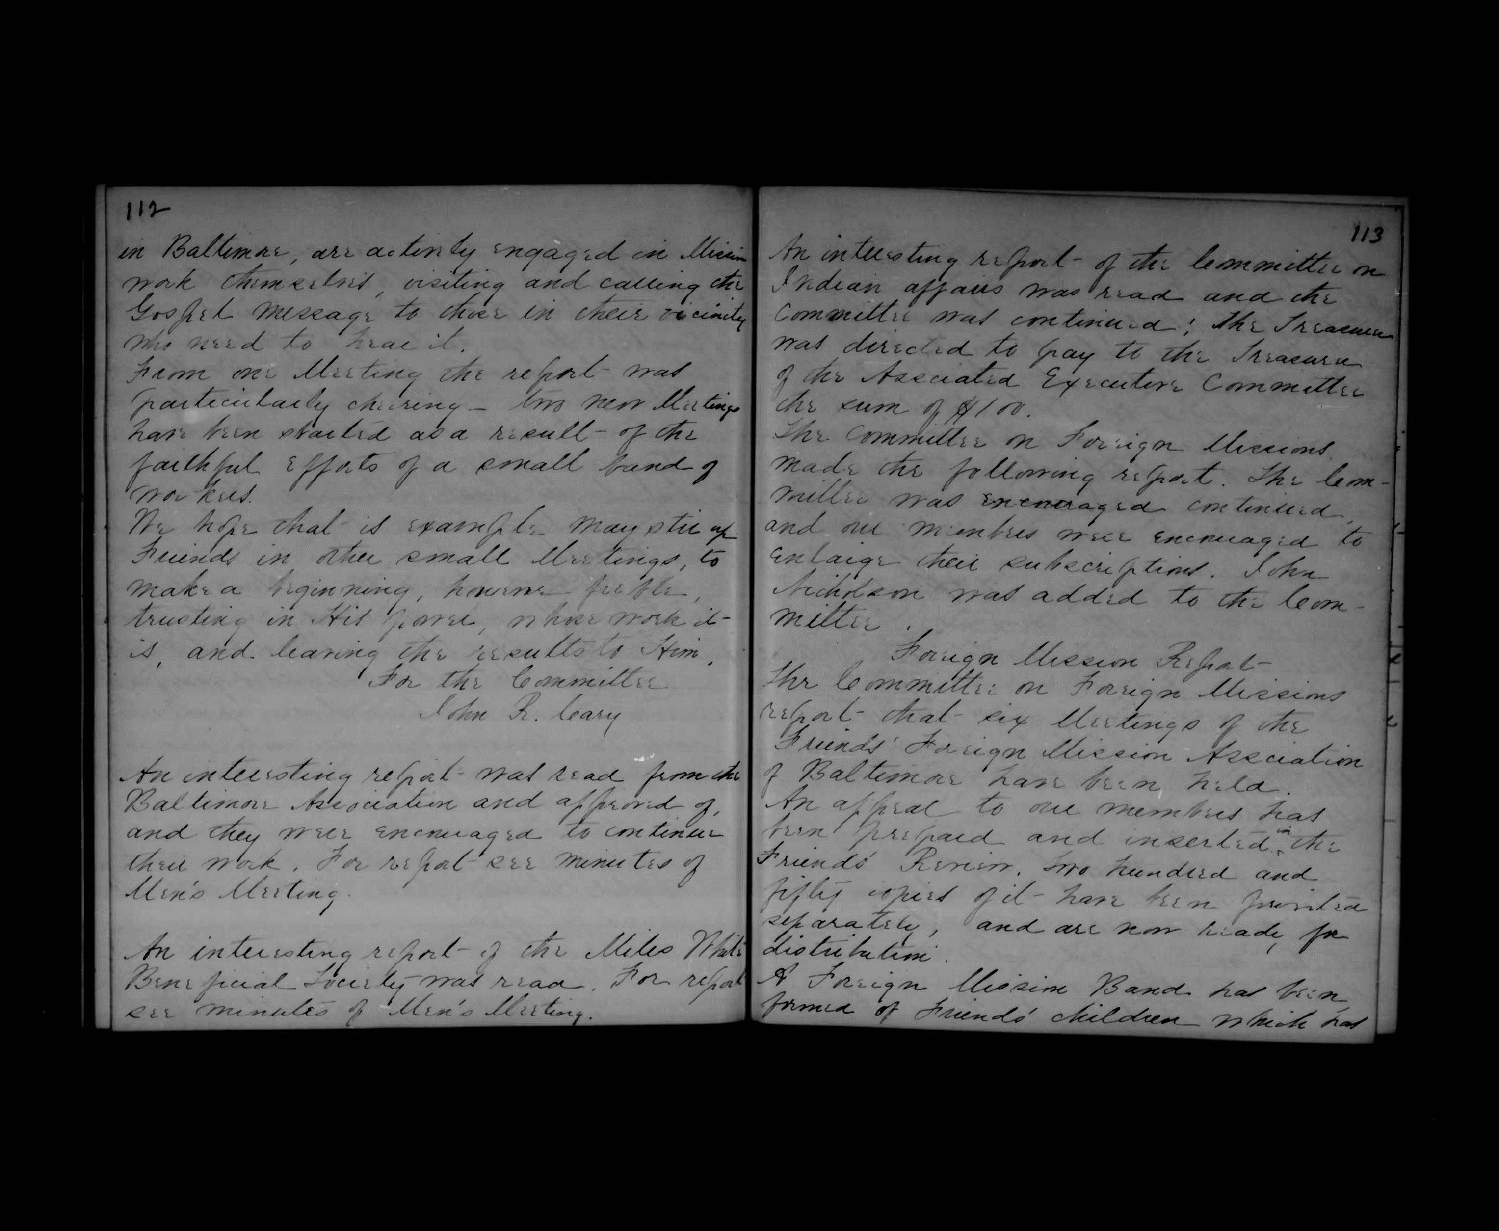 112
in Baltimore, are actively engaged in Mission
work themselves, visiting and carrying the
Gospel Message to those in their vicinity
who need to hear it.
From one Meeting the report was
particularly cheering - two new Meetings
have been started as a result of the
faithful efforts of a small band of
workers.
We hope that is example may stir up
Friends in other small Meetings, to
make a beginning, however feeble,
trusting in His power, whose work it
is, and leaving the results to Him.
For the Committee
John R. Cary
An interesting report was read from the
Baltimore Association and approved of,
and they were encouraged to continue
their work. For report see minutes of
Men's Meeting.
An interesting report of the Miles White
Beneficial Society was read. For report
see minutes of Men's Meeting.
113
An interesting report of the Committee on
Indian affairs was read and the
Committee was continued; the Treasurer
was directed to pay to the Treasurer
of the Associated Executive Committee
the sum of $100.
The Committee on Foreign Missions
made the following report. The Com-
mittee was encouraged continued,
and our members were encouraged to
enlarge their subscriptions. John
Nicholson was added to the Com-
mittee.
Foreign Mission Report
The Committee on Foreign Missions
report that six Meetings of the
Friends' Foreign Mission Association
of Baltimore have been held.
An appeal to our members has
been prepared and inserted in the
Friends' Review. Two hundred and
fifty copies of it have been printed
separately, and are now ready for
distribution.
A Foreign Mission Band has been
formed of Friends' children which has